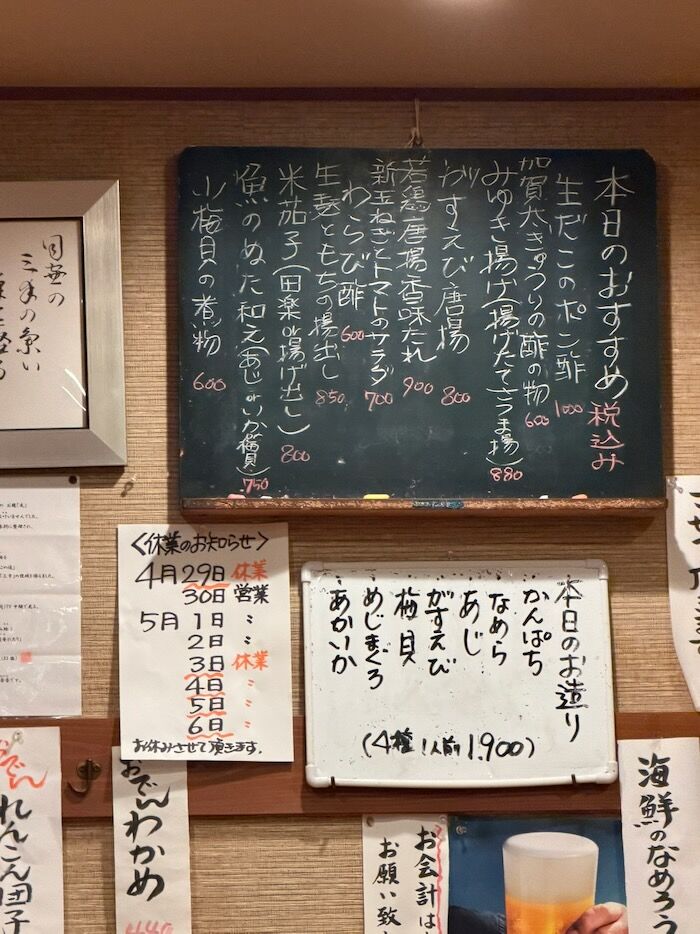 本日のおすすめ 税込み
生だこのポン酢 1000
加賀太きゅうりの酢の物 600
みゆき揚げ(揚げたてさつま揚) 880
がすえび唐揚 800
若鶏唐揚香味だれ 900
新玉ねぎとトマトのサラダ 700
わらび酢 600
生麩ともちの揚出し 850
米茄子(田楽or揚げ出し) 800
魚のぬた和え(あじorいか梅貝) 750
小梅貝の煮物 600
<休業のお知らせ>
4月29日 休業
30日 営業
5月1日 〃
2日 〃
3日 休業
4日 〃
5日 〃
6日 〃
お休みさせて頂きます.
本日のお造り
かんぱち
なめら
あじ
がすえび
梅貝
めじまぐろ
あかいか
(4種 1人前 1,900)
海鮮のなめろう
お会計は
お願い致
おでんわかめ
おでん
れんこん団子